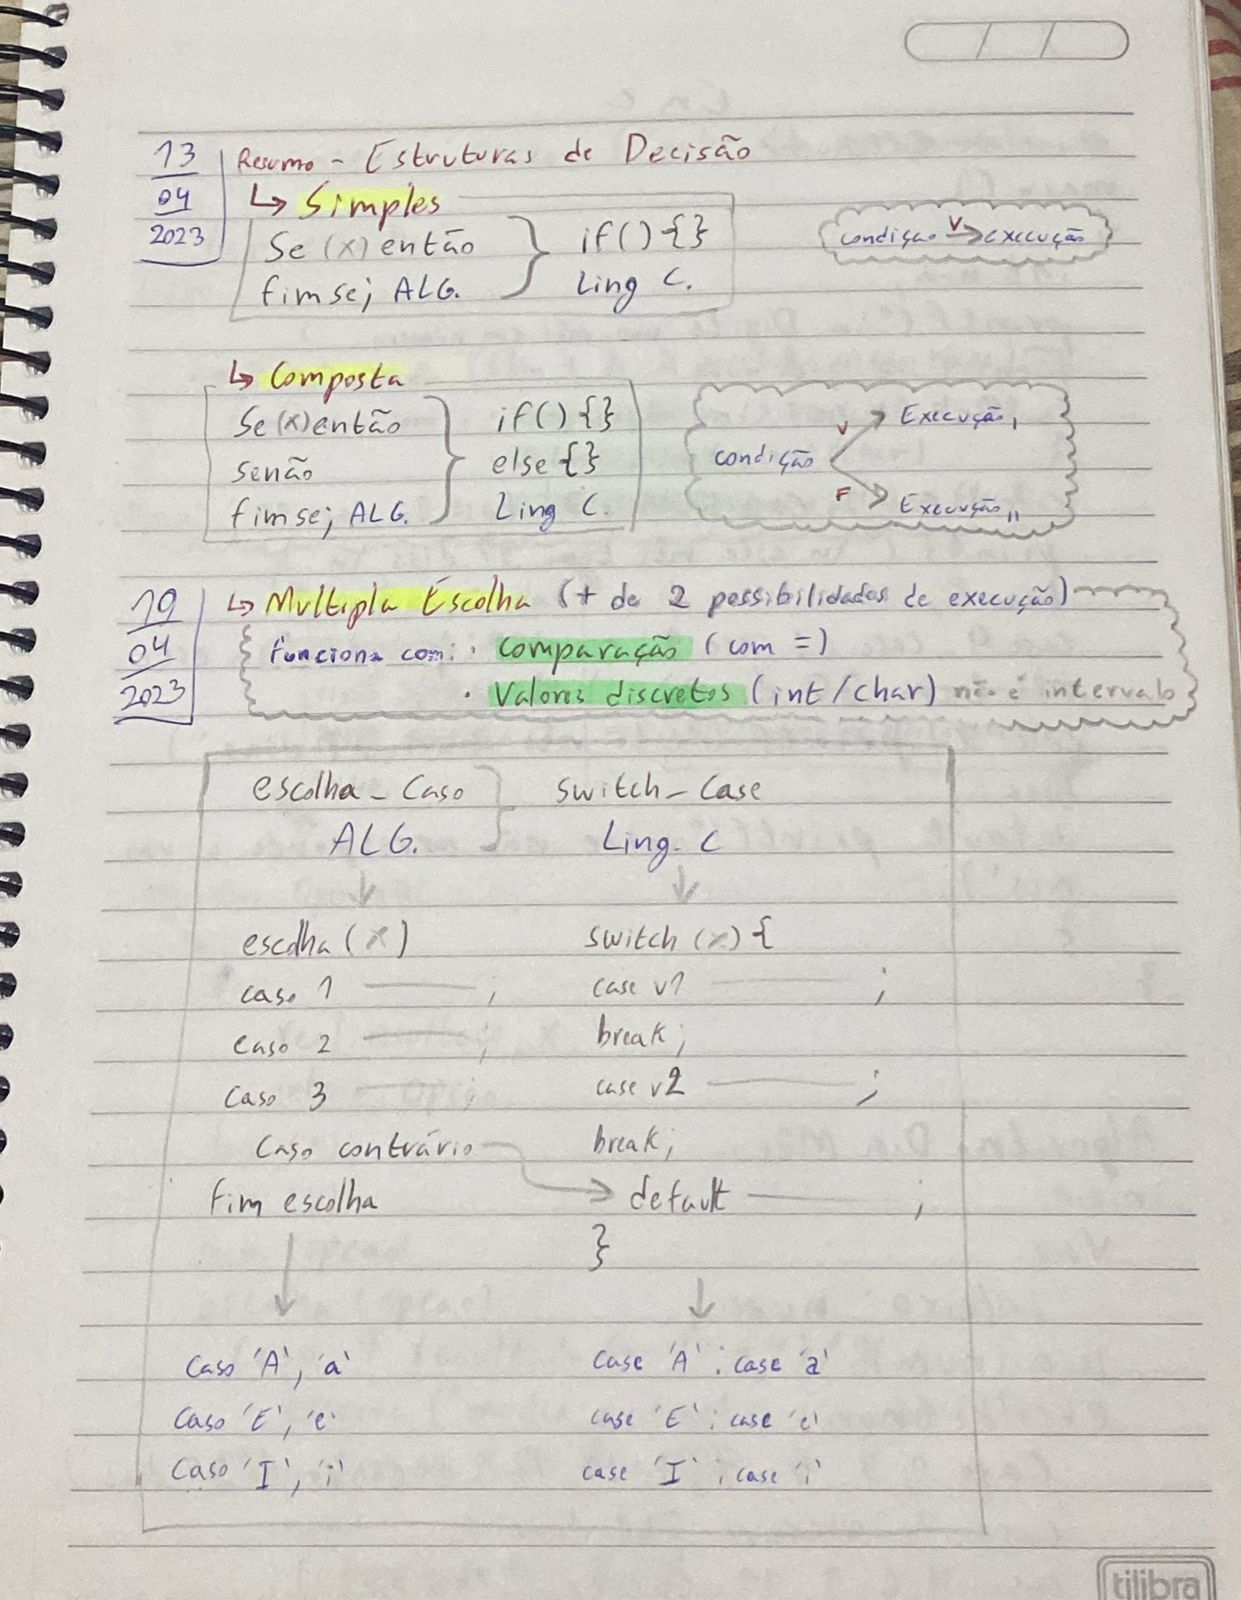 13
04
2023
Resumo - Estruturas de Decisão
↳ Simples
Se (x) então } if() {}
fimse; ALG. Ling C.
condição V→ execução
↳ Composta
Se (x) então } if() {}
senão else {}
fimse; ALG. Ling C.
condição
V Execução I
F Execução II
19
04
2023
↳ Multipla Escolha (+ de 2 possibilidades de execução)
funciona com: · comparação (com =)
· Valores discretos (int/char) não é intervalo
escolha-caso } switch-case
ALG. Ling. C
escolha (x) switch (x) {
caso 1 ——— ; case v1 ——— ;
caso 2 ——— ; break;
caso 3 ——— ; case v2 ——— ;
caso contrário break;
fim escolha → default ——— ;
}
caso 'A', 'a' case 'A': case 'a'
caso 'E', 'e' case 'E': case 'e'
caso 'I', 'i' case 'I': case 'i'
tilibra